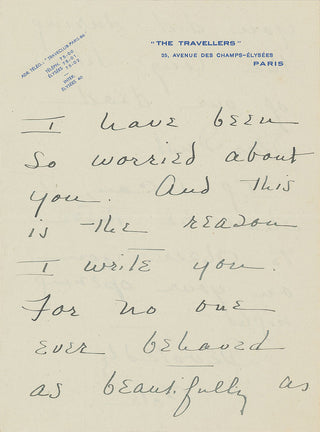 "THE TRAVELLERS"
25, AVENUE DES CHAMPS-ÉLYSÉES
PARIS
ADR. TÉLÉG.: "TRAVECLUB-PARIS-86"
TÉLÉPH.
ÉLYSÉES
INTER
ÉLYSÉES
I have been
So worried about
you. And this
is the reason
I write you.
For no one
ever behaved
as beautifully as